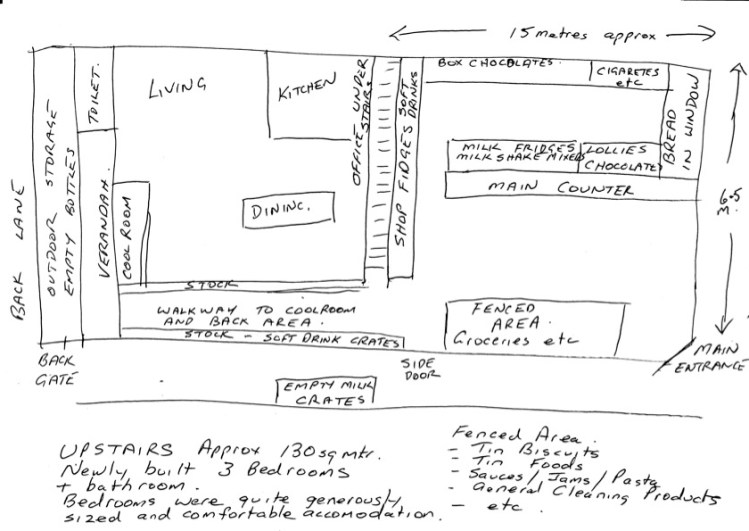 15 metres approx
BACK LANE
OUTDOOR STORAGE
EMPTY BOTTLES
TOILET.
VERANDAH.
LIVING
KITCHEN
OFFICE UNDER
STAIRS
SHOP FIDGES SOFT
DRINKS
BOX CHOCOLATES.
CIGARETES
etc
BREAD
IN WINDOW
MILK FRIDGES
MILKSHAKE MIXERS
LOLLIES
CHOCOLATES
MAIN COUNTER
6.5
M.
COOLROOM
DINING.
STOCK
WALKWAY TO COOLROOM
AND BACK AREA.
STOCK - SOFT DRINK CRATES
FENCED
AREA.
Groceries etc
BACK
GATE
SIDE
DOOR
MAIN
ENTRANCE
EMPTY MILK
CRATES
UPSTAIRS Approx 130 sq mtr.
Newly built 3 Bedrooms
+ bathroom.
Bedrooms were quite generously
sized and comfortable accomodation.
Fenced Area.
- Tin Biscuits
- Tin Foods
- Sauces/Jams/Pasta
- General Cleaning Products
- etc.